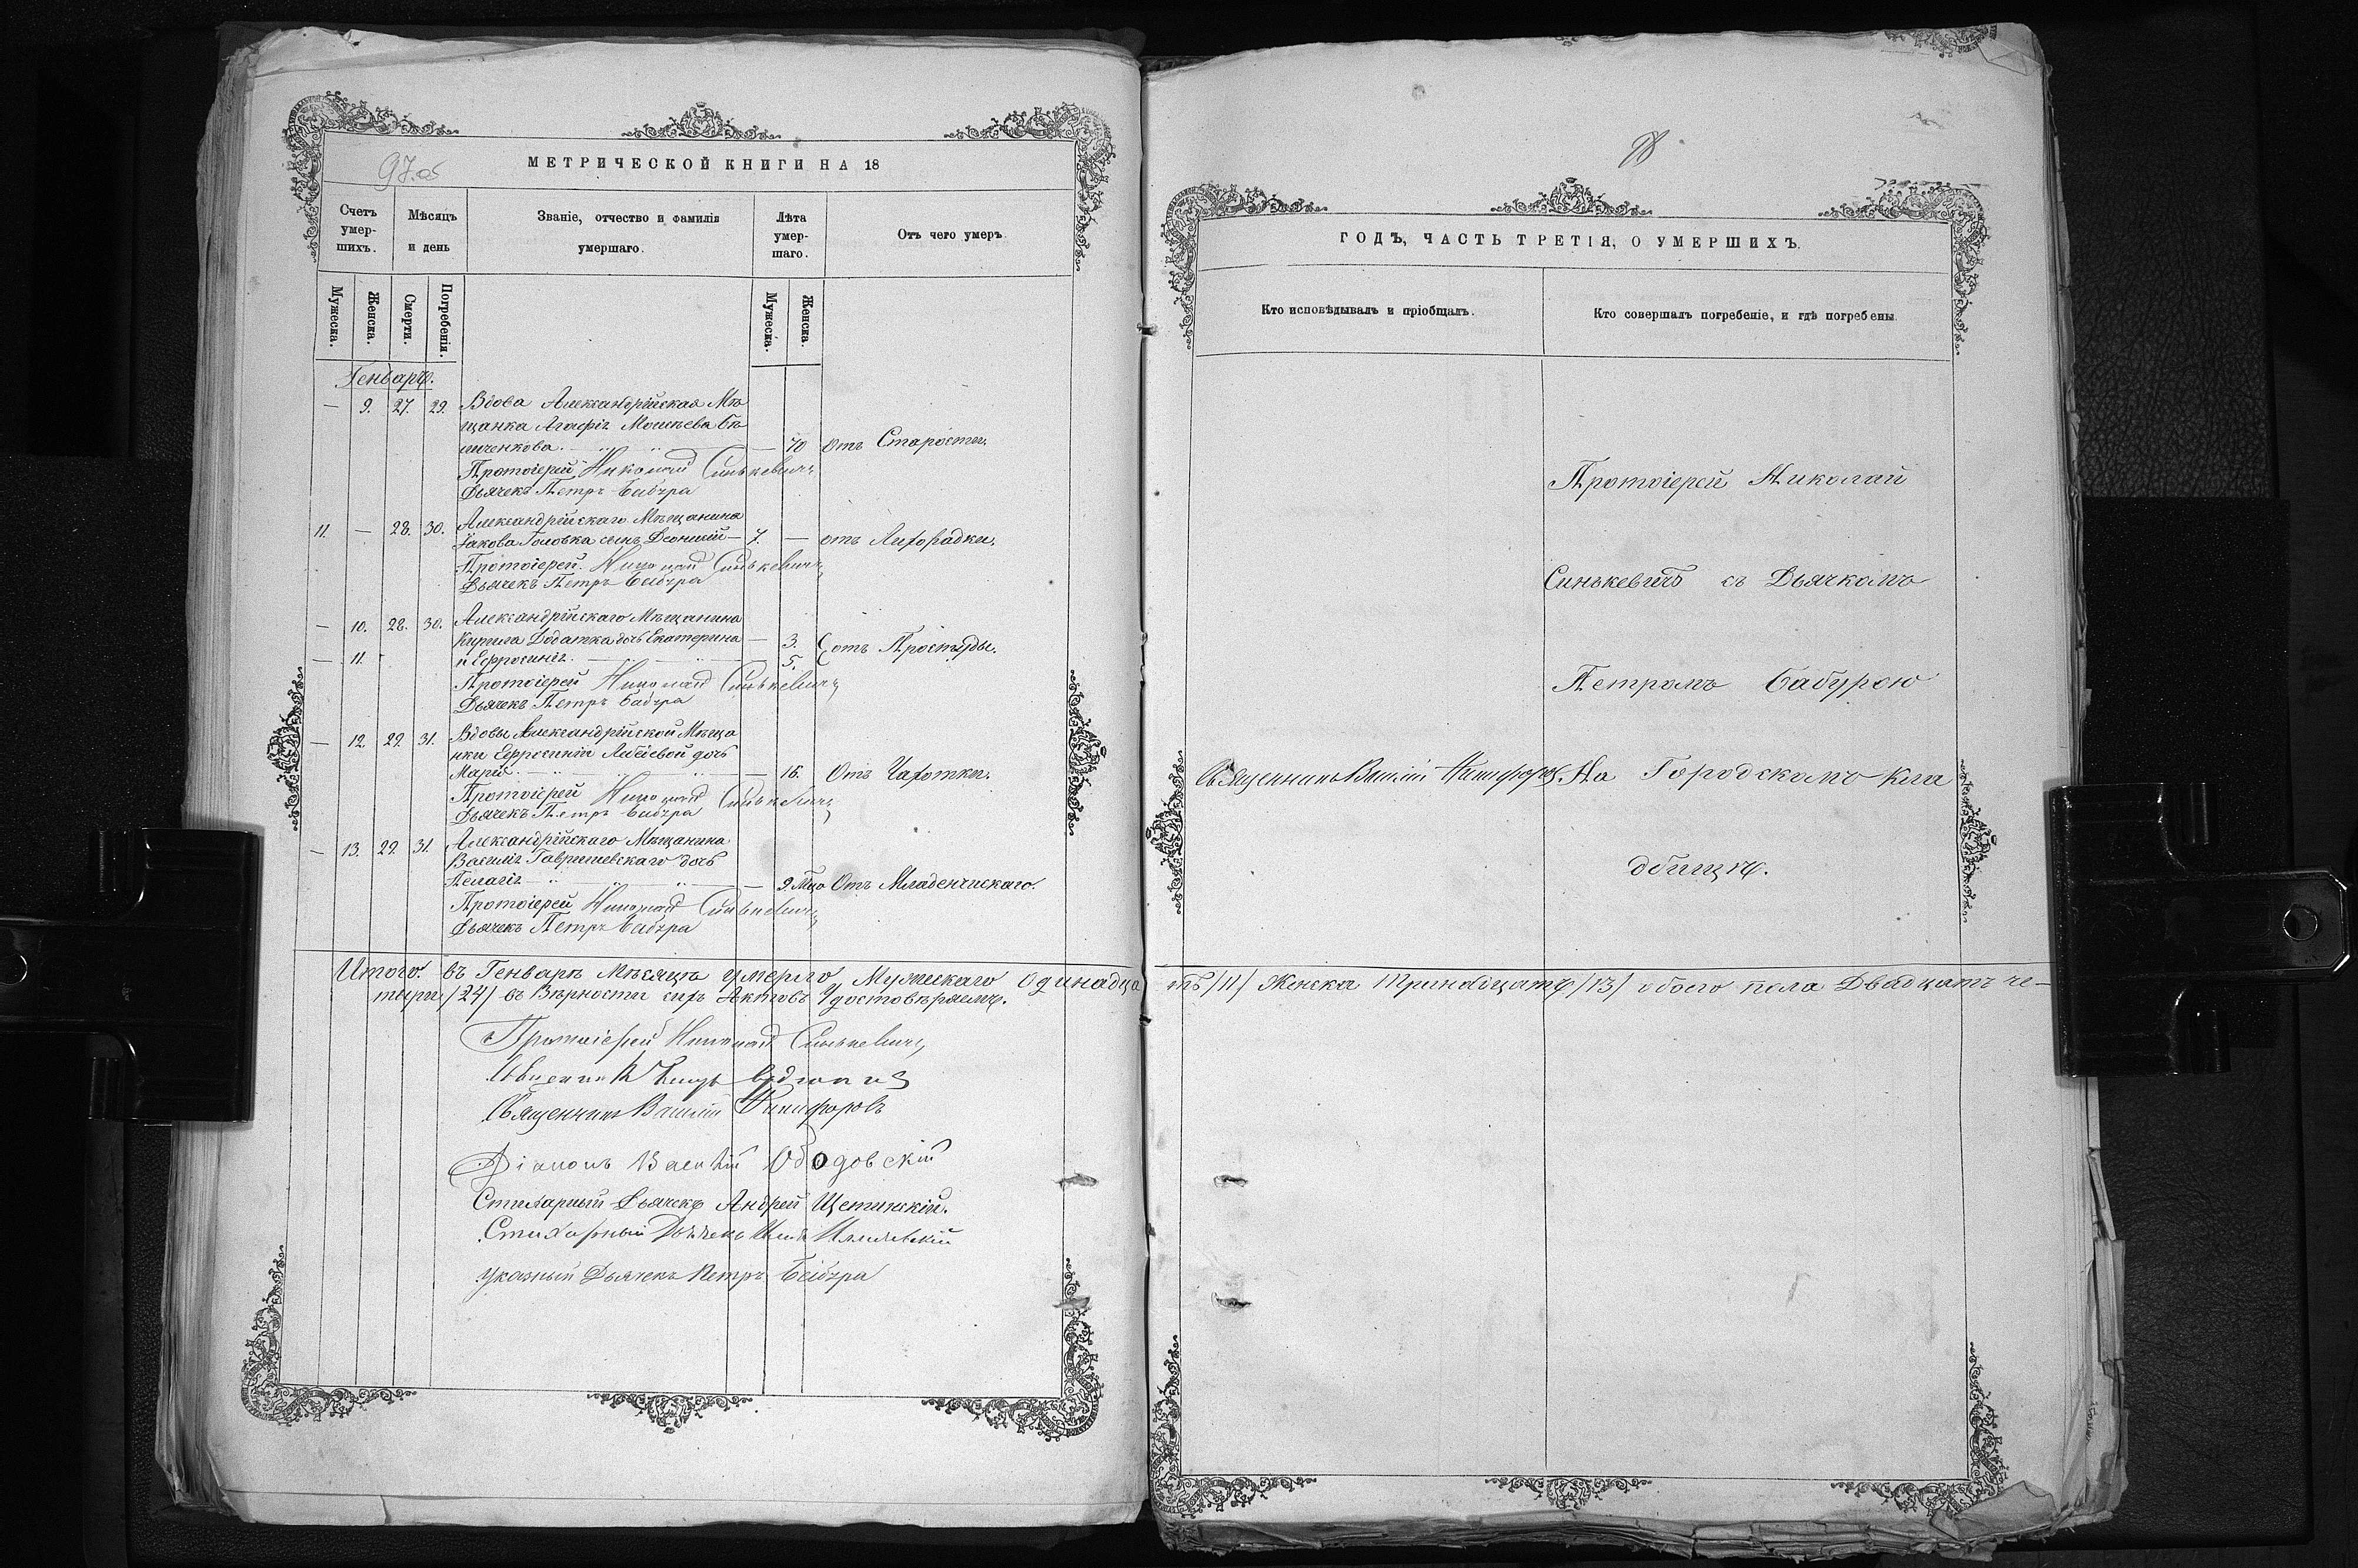 97 об
МЕТРИЧЕСКОЙ КНИГИ НА 18
Счетъ умер-шихъ.
Мѣсяцъ и день
Званіе, отчество и фамилія умершаго.
Лѣта умер-шаго.
Отъ чего умеръ
Мужеска.
Женска.
Смерти.
Погребенія.
Мужеска.
Женска.
Генварь.
— 9. 27. 29. Вдова Александрійская Мѣ
щанка Агафія Моисѣева
— 70 Отъ Старости.
Протоіерей Николай Синькевичъ
Дьячекъ Петръ Бабура
11. — 28. 30. Александрійскаго Мѣщанина
Іакова Головка сынъ Леонтій — 7. — отъ Лихорадки.
Протоіерей Николай Синькевичъ
Дьячекъ Петръ Бабура
— 10. 28. 30. Александрійскаго Мѣщанина
Кирила Додатка дочь Екатерина — 3. отъ Простуды.
— 11. и Ефросинія — 5.
Протоіерей Николай Синькевичъ
Дьячекъ Петръ Бабура
— 12. 29. 31. Вдовы Александрійской Мѣща
нки Ефросиніи дочь
Марія — 16. Отъ Чахотки.
Протоіерей Николай Синькевичъ
Дьячекъ Петръ Бабура
— 13. 29. 31. Александрійскаго Мѣщанина
Василія Гавришевскаго дочь
Пелагія — 9. Мцо Отъ Младенчискаго.
Протоіерей Николай Синькевичъ
Дьячекъ Петръ Бабура
Итого. въ Генварѣ Мѣсяцѣ умерло Мужескаго одинадца
тыри /24/ въ Вѣрности сихъ Актовъ Удостовѣряемъ.
Протоіерей Николай Синькевичъ
Священникъ
Священникъ Василій Никифоровъ
Діаконъ Василій Ободовскій
Стихарный Дьячекъ Андрей Щетинскій.
Стихарный Дьячекъ
Указный Дьячекъ Петръ Бабура
98
ГОДЪ, ЧАСТЬ ТРЕТІЯ, О УМЕРШИХЪ.
Кто исповѣдывалъ и пріобщалъ.
Кто совершалъ погребеніе, и гдѣ погребены.
Протоіерей Николай
Синькевичъ съ Дьячкомъ
Петромъ Бабурою
Священникъ Василій Никифоровъ.
На Городскомъ кла
дбищѣ.
ть /11/ Женска Тринадцать /13/ обоего пола Двадцать че-